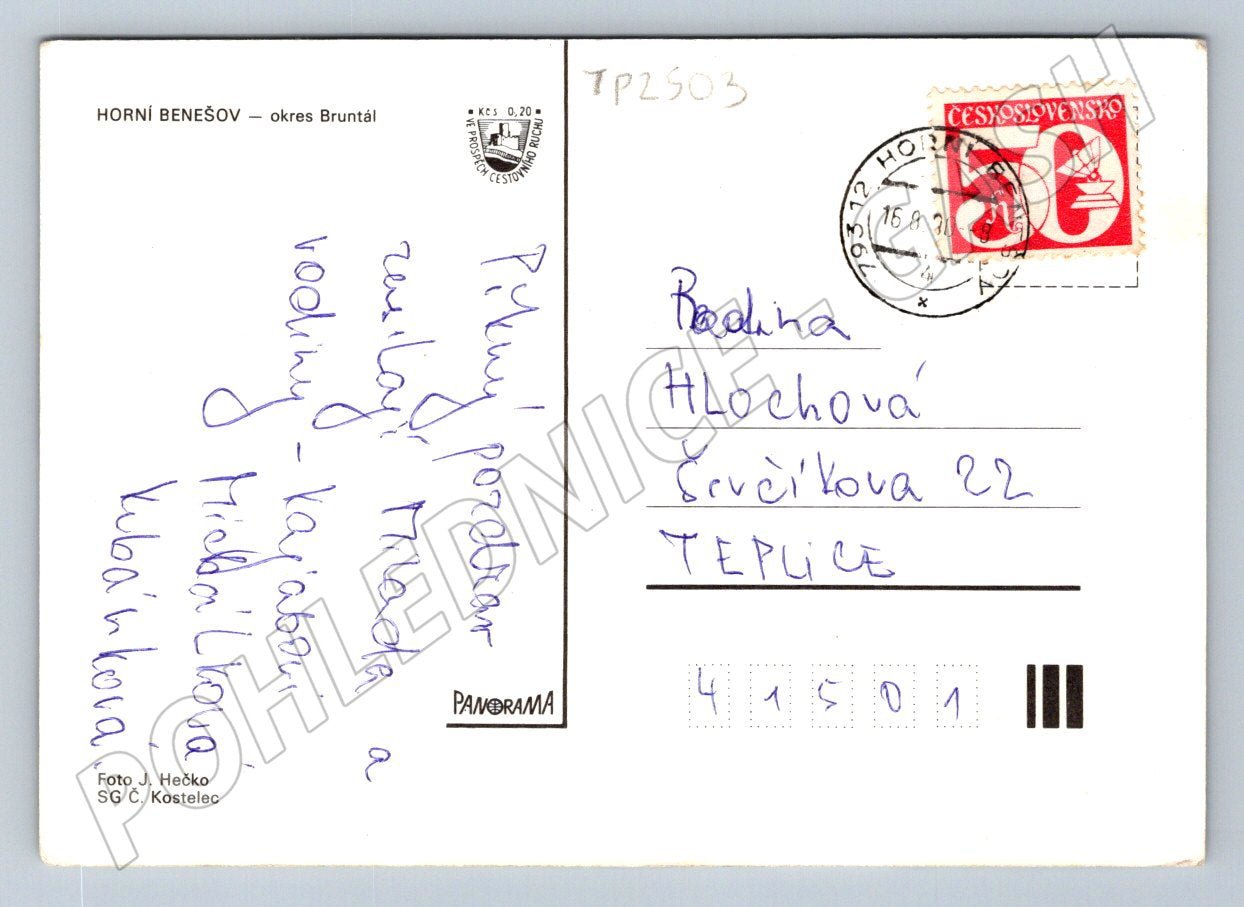 HORNÍ BENEŠOV — okres Bruntál
Kčs 0,20
VE PROSPĚCH CESTOVNÍHO RUCHU
TP2503
ČESKOSLOVENSKO
50
793 12 HORNÍ BENEŠOV
16.8.
Pěkný pozdrav
zasílají Milada a
rodiny – Karjabovi
Michálková
Kubánková
Rodina
HLochová
Ševčíkova 22
TEPLICE
41501
PANORAMA
Foto J. Hečko
SG Č. Kostelec
POHLEDNICE - GASH